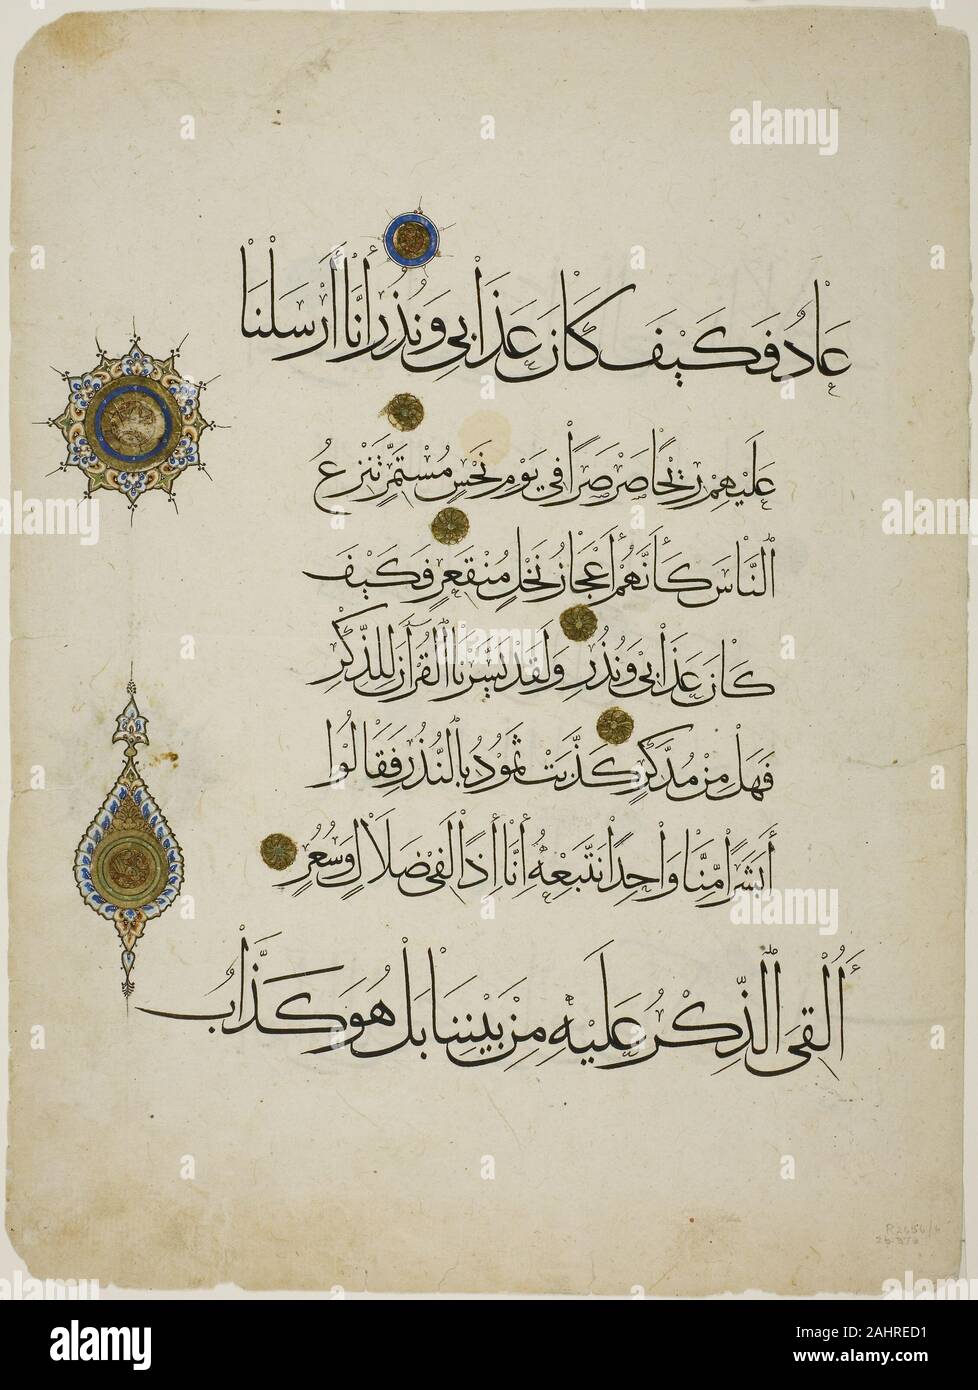 عَادٌ فَكَيْفَ كَانَ عَذَابِي وَنُذُرِ إِنَّا أَرْسَلْنَا
عَلَيْهِمْ رِيحًا صَرْصَرًا فِي يَوْمِ نَحْسٍ مُسْتَمِرٍّ تَنْزِعُ
النَّاسَ كَأَنَّهُمْ أَعْجَازُ نَخْلٍ مُنْقَعِرٍ فَكَيْفَ
كَانَ عَذَابِي وَنُذُرِ وَلَقَدْ يَسَّرْنَا الْقُرْآنَ لِلذِّكْرِ
فَهَلْ مِنْ مُدَّكِرٍ كَذَّبَتْ ثَمُودُ بِالنُّذُرِ فَقَالُوا
أَبَشَرًا مِنَّا وَاحِدًا نَتَّبِعُهُ إِنَّا إِذًا لَفِي ضَلَالٍ وَسُعُرٍ
أَأُلْقِيَ الذِّكْرُ عَلَيْهِ مِنْ بَيْنِنَا بَلْ هُوَ كَذَّابٌ
R2656/6
alamy
alamy
Image ID: 2AHRED1
www.alamy.com